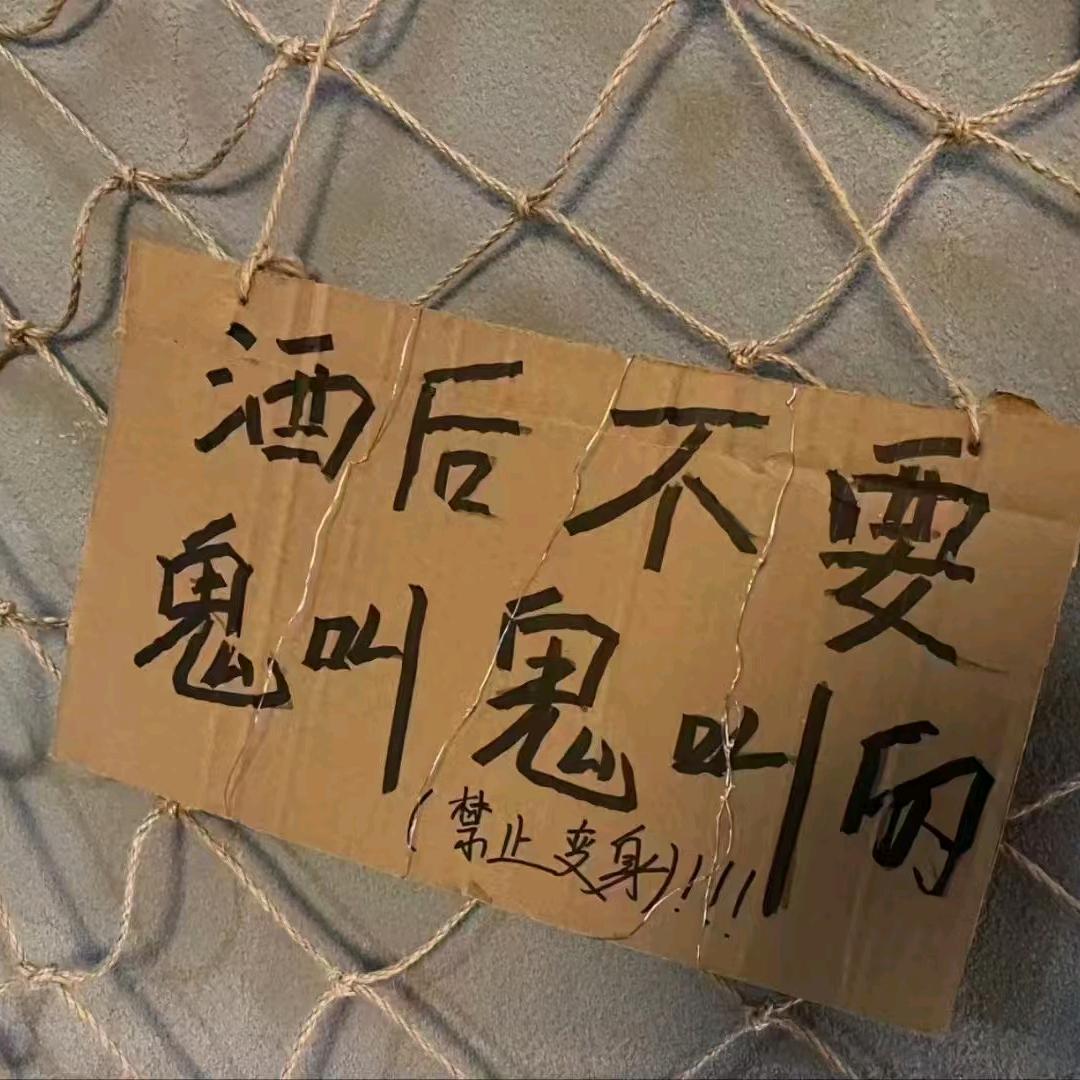 酒后不要
鬼叫鬼叫的
(禁止变身)!!!